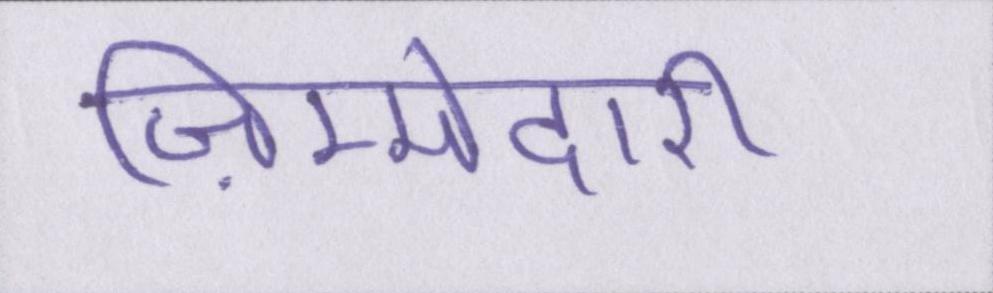 ज़िम्मेदारी